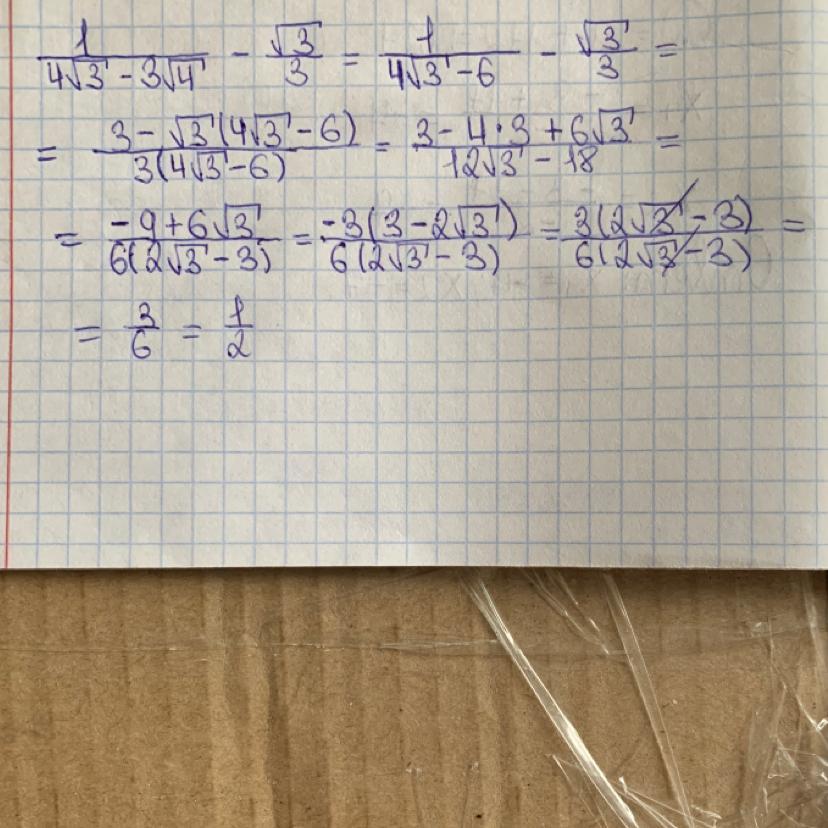 1/(4√3 - 3√4) - √3/3 = 1/(4√3 - 6) - √3/3 =
= (3 - √3(4√3 - 6))/(3(4√3 - 6)) = (3 - 4·3 + 6√3)/(12√3 - 18) =
= (-9 + 6√3)/(6(2√3 - 3)) = (-3(3 - 2√3))/(6(2√3 - 3)) = (3(2√3 - 3))/(6(2√3 - 3)) =
= 3/6 = 1/2